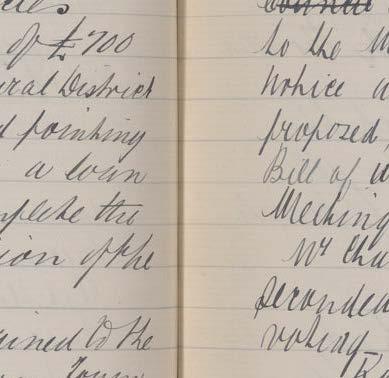 of £700
ural District
d pointing
a loan
mplete the
ion of the
ained to the
Town
Council
to the
notice a
proposed,
Bill of
Meeting
Mr Cha
seconded
voting